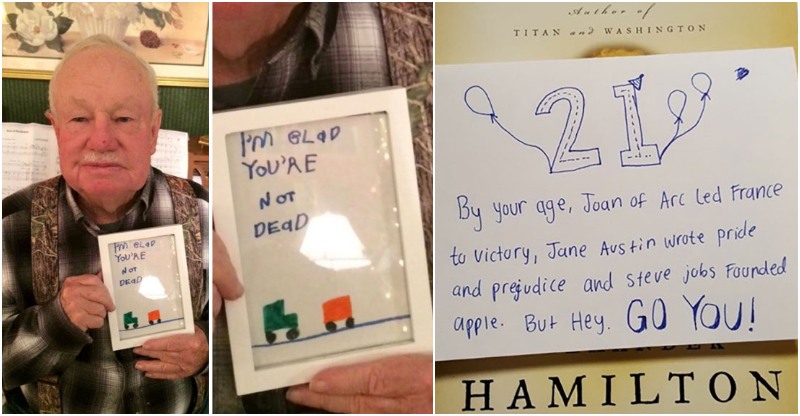 I'M GLAD
YOU'RE
NOT
DEAD
I'M GLAD
YOU'RE
NOT
DEAD
Author of
TITAN and WASHINGTON
21
By your age, Joan of Arc Led France
to victory, Jane Austin wrote pride
and prejudice and steve jobs Founded
apple. But Hey. GO YOU!
HAMILTON